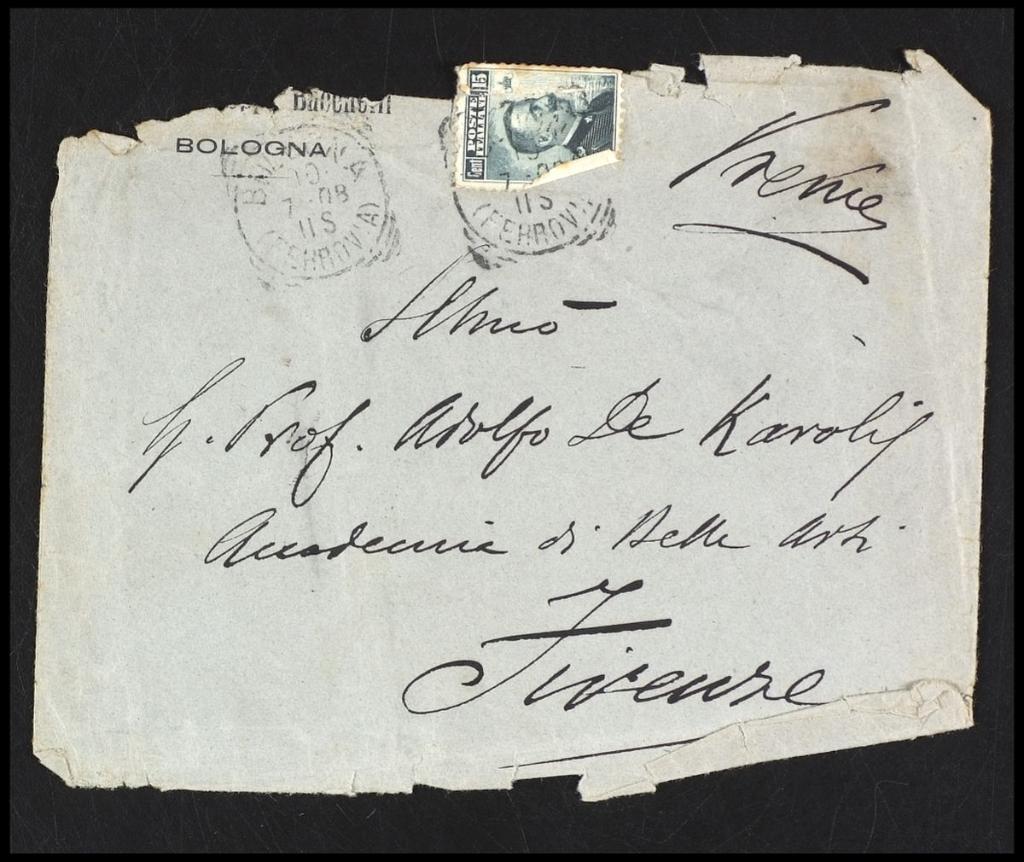 Bacchelli
BOLOGNA
BOLOGNA
10.
7 . 08
11 S
(FERROVIA)
Cent 15
POSTE
ITALIANE
7 . 08
11 S
(FERROVIA)
Preme
Illmo
Sig. Prof. Adolfo De Karolis
Accademia di Belle Arti
Firenze